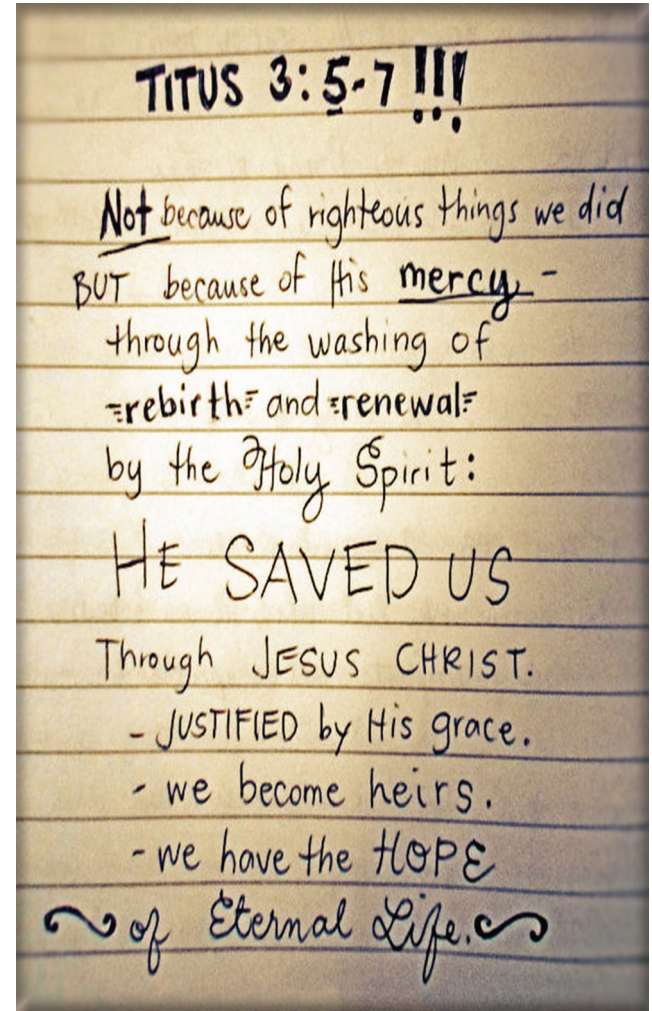 TITUS 3:5-7 !!!
Not because of righteous things we did
BUT because of His mercy -
through the washing of
rebirth and renewal
by the Holy Spirit:
HE SAVED US
Through JESUS CHRIST.
- JUSTIFIED by His grace.
- we become heirs.
- we have the HOPE
of Eternal Life.